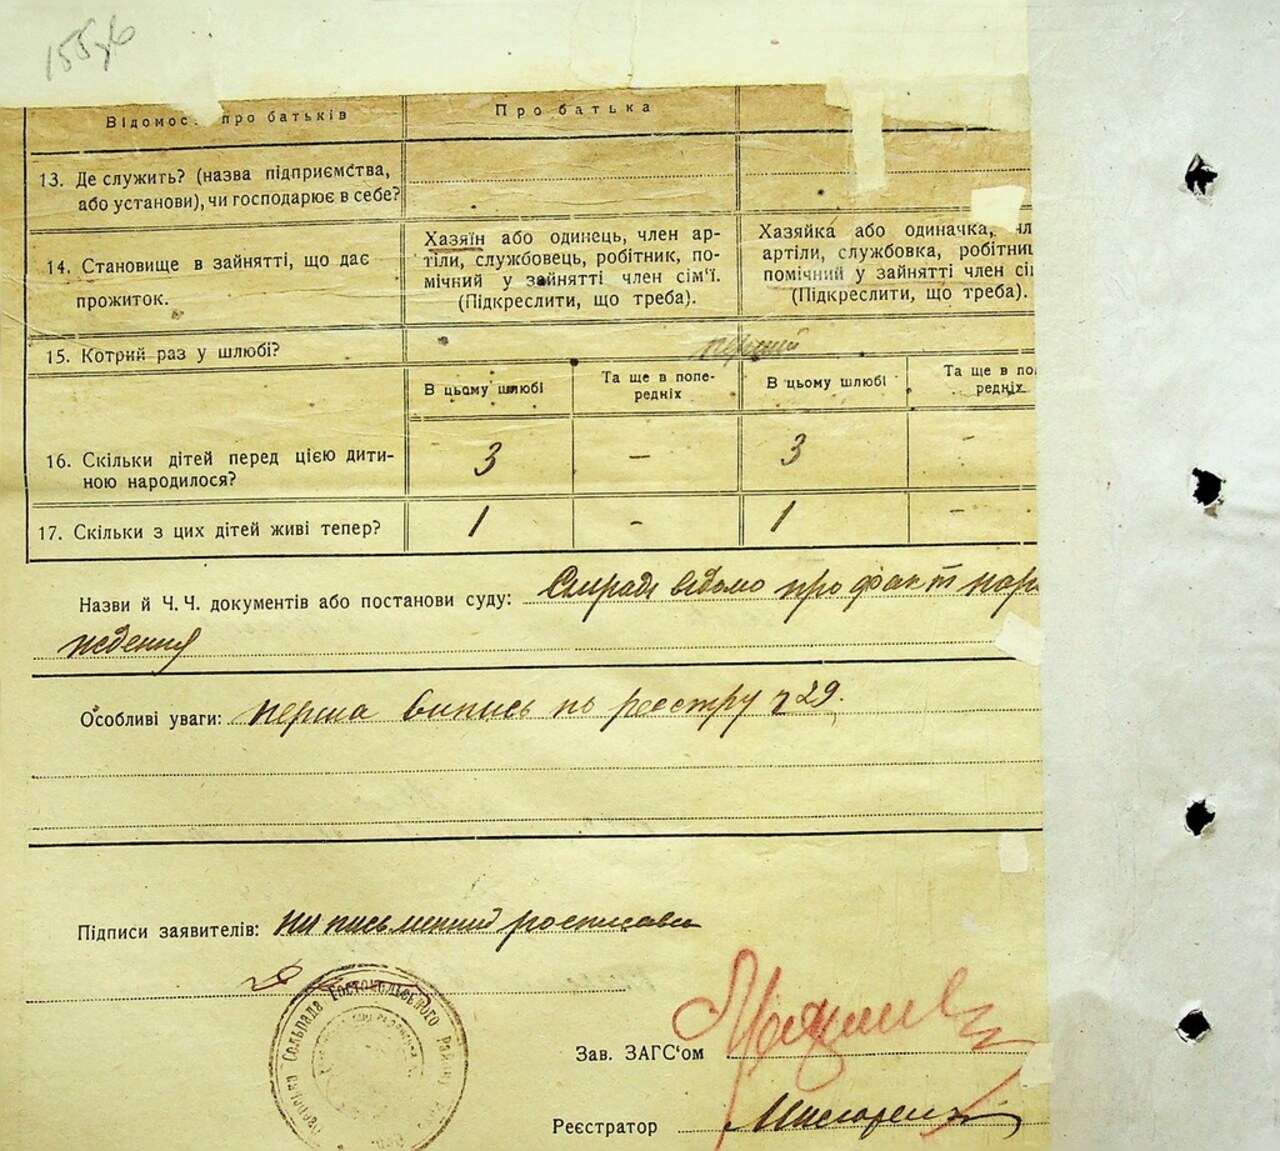 155зв
Відомос. про батьків
Про батька
13. Де служить? (назва підприємства,
або установи), чи господарює в себе?
14. Становище в зайнятті, що дає
прожиток.
Хазяїн або одинець, член ар-
тіли, службовець, робітник, по-
мічний у зайнятті член сім'ї.
(Підкреслити, що треба).
Хазяйка або одиначка, чл
артіли, службовка, робітниц
помічний у зайнятті член сі
(Підкреслити, що треба).
15. Котрий раз у шлюбі?
перший
В цьому шлюбі
Та ще в попе-
редніх
В цьому шлюбі
Та ще в по
редніх
16. Скільки дітей перед цією дити-
ною народилося?
3 - 3 -
17. Скільки з цих дітей живі тепер?
1 - 1 -
Назви й Ч. Ч. документів або постанови суду: відомо про факт наро
ждения
Особливі уваги: перша випись по реєстру ч 29.
Підписи заявителів: росписавсь
Сельрада Гостомельського Району
Зав. ЗАГС'ом
Реєстратор